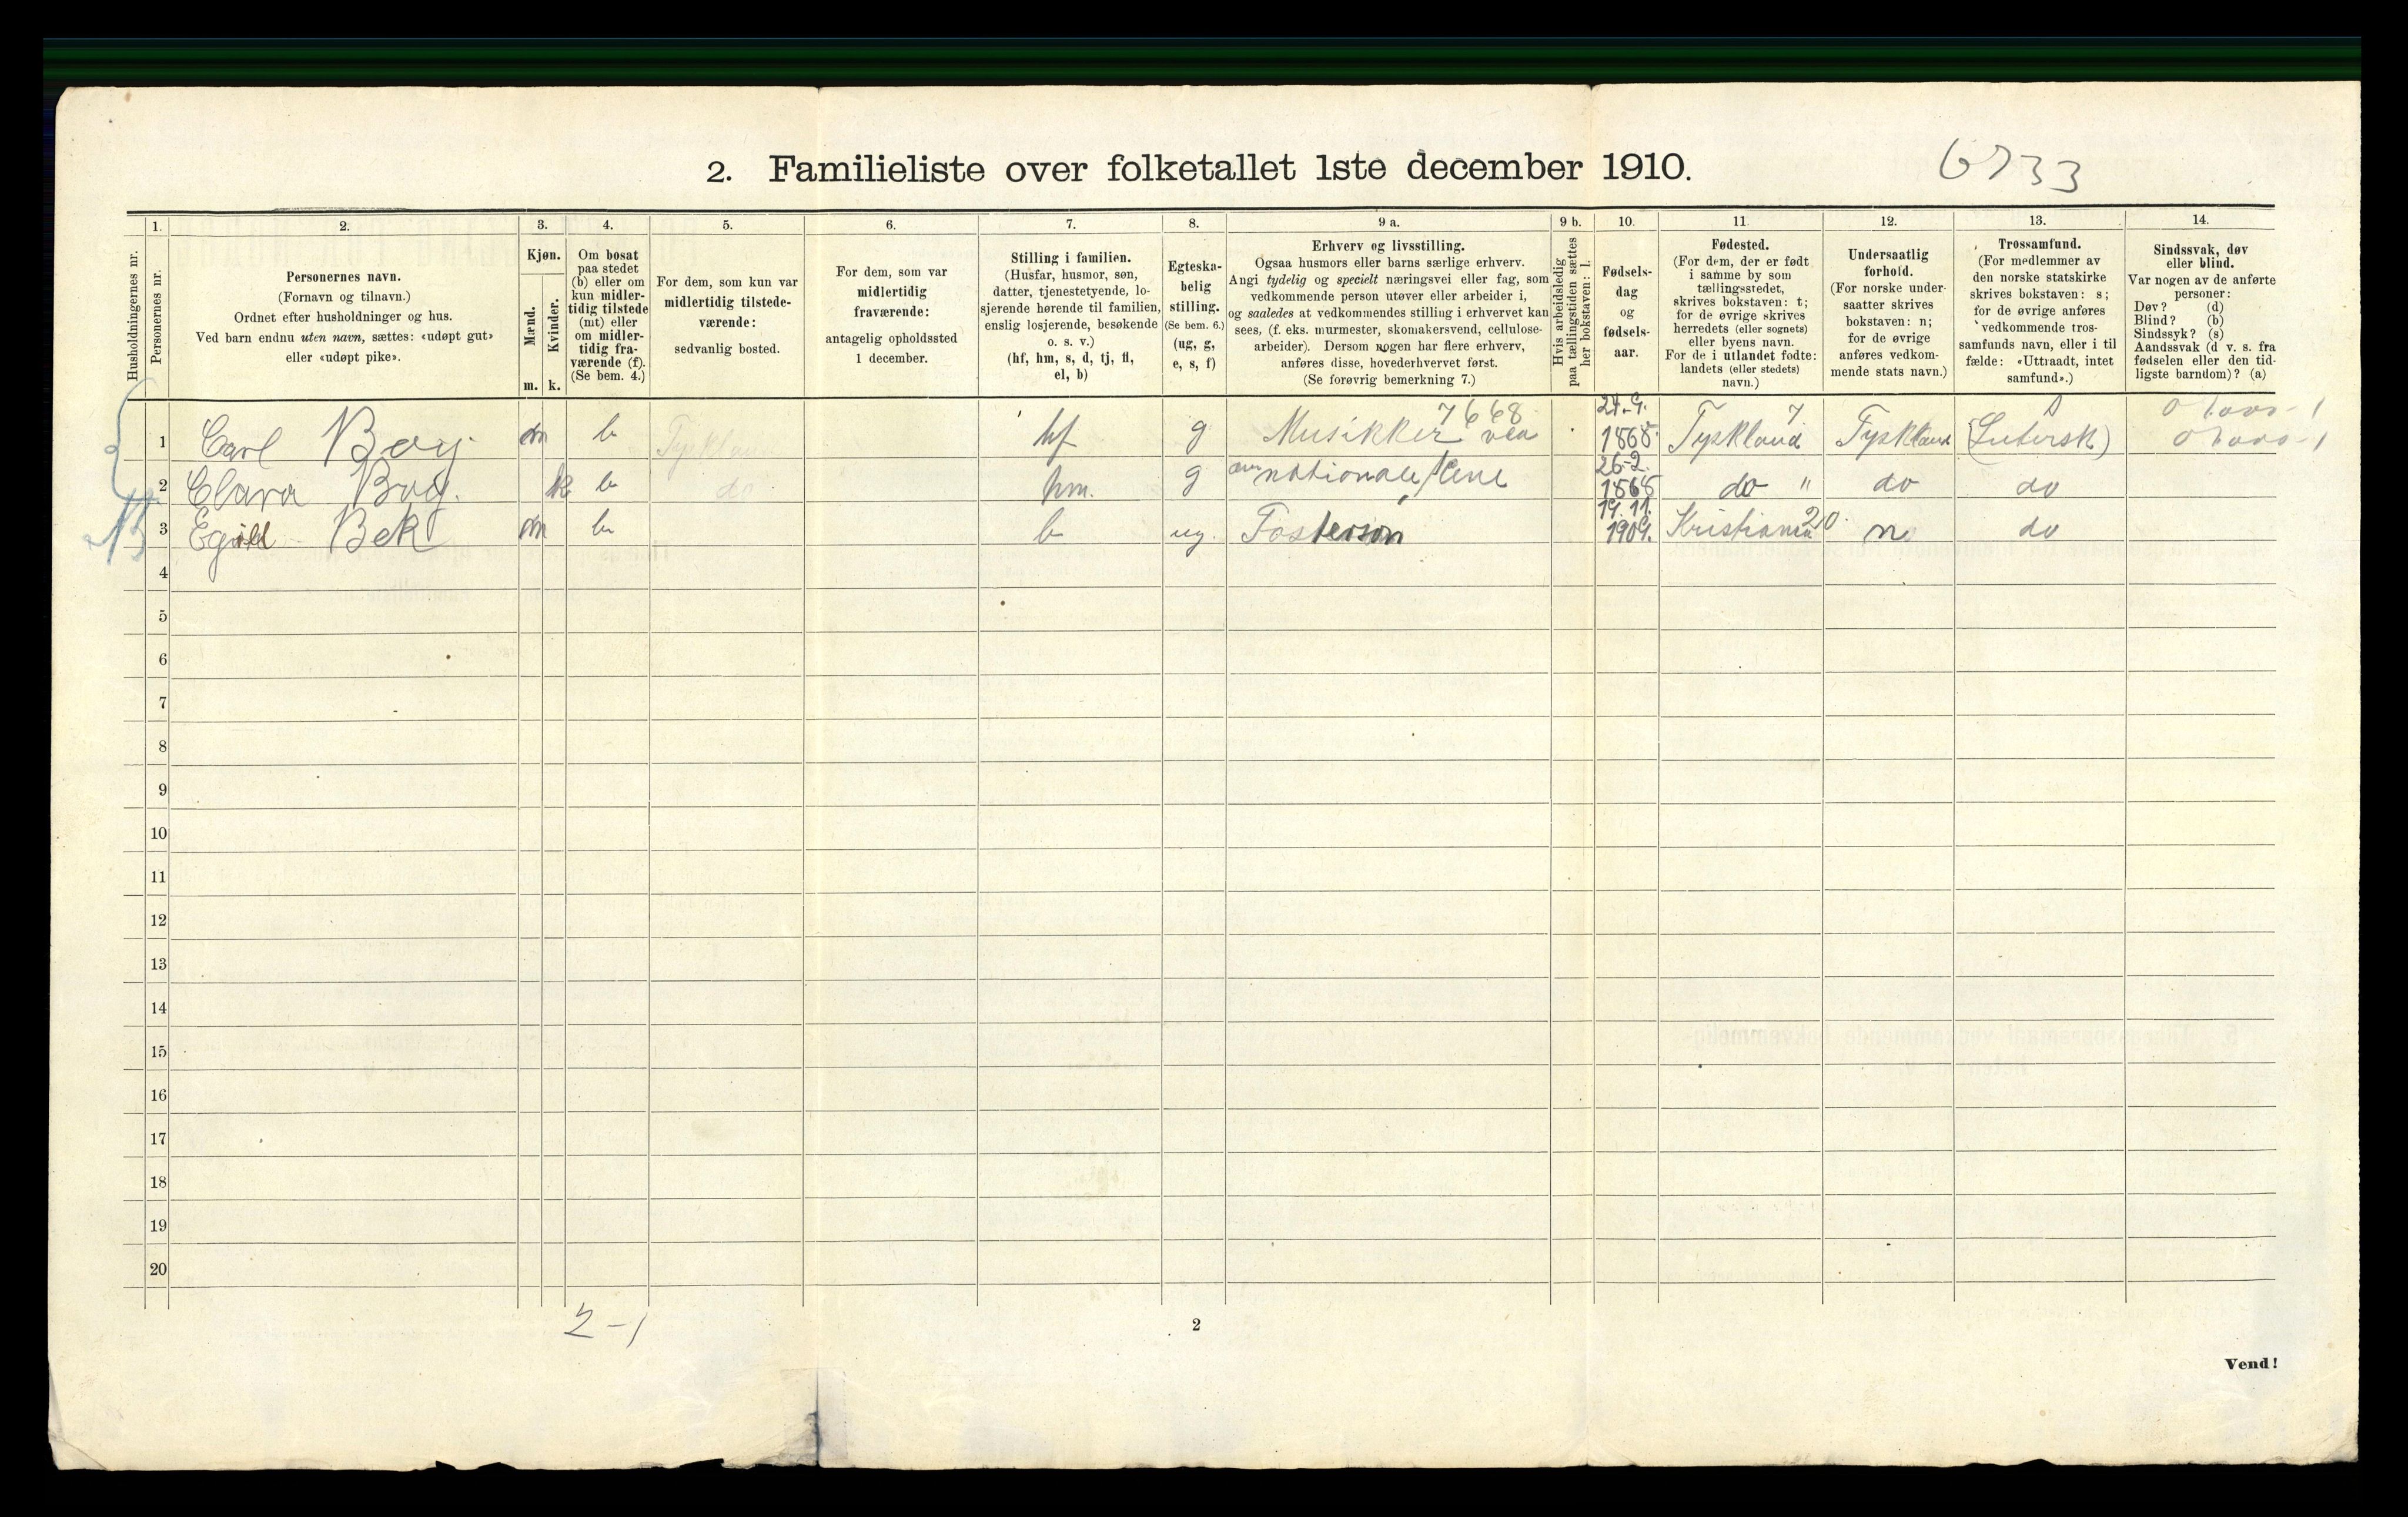 2. Familieliste over folketallet 1ste december 1910.
6733
Husholdningernes nr.
1.
Personernes nr.
2.
Personernes navn.
(Fornavn og tilnavn.)
Ordnet efter husholdninger og hus.
Ved barn endnu uten navn, sættes: «udøpt gut»
eller «udøpt pike».
3.
Kjøn.
Mænd.
Kvinder.
m. k.
4.
Om bosat
paa stedet
(b) eller om
kun midler-
tidig tilstede
(mt) eller
om midler-
tidig fra-
værende (f).
(Se bem. 4.)
5.
For dem, som kun var
midlertidig tilstede-
værende:
sedvanlig bosted.
6.
For dem, som var
midlertidig
fraværende:
antagelig opholdssted
1 december.
7.
Stilling i familien.
(Husfar, husmor, søn,
datter, tjenestetyende, lo-
sjerende hørende til familien,
enslig losjerende, besøkende
o. s. v.)
(hf, hm, s, d, tj, fl,
el, b)
8.
Egteska-
belig
stilling.
(Se bem. 6.)
(ug, g,
e, s, f)
9 a.
Erhverv og livsstilling.
Ogsaa husmors eller barns særlige erhverv.
Angi tydelig og specielt næringsvei eller fag, som
vedkommende person utøver eller arbeider i,
og saaledes at vedkommendes stilling i erhvervet kan
sees, (f. eks. murmester, skomakersvend, cellulose-
arbeider). Dersom nogen har flere erhverv,
anføres disse, hovederhvervet først.
(Se forøvrig bemerkning 7.)
9 b.
Hvis arbeidsledig
paa tællingstiden sættes
her bokstaven: l.
10.
Fødsels-
dag
og
fødsels-
aar.
11.
Fødested.
(For dem, der er født
i samme by som
tællingsstedet,
skrives bokstaven: t;
for de øvrige skrives
herredets (eller sognets)
eller byens navn.
For de i utlandet fødte:
landets (eller stedets)
navn.)
12.
Undersaatlig
forhold.
(For norske under-
saatter skrives
bokstaven: n;
for de øvrige
anføres vedkom-
mende stats navn.)
13.
Trossamfund.
(For medlemmer av
den norske statskirke
skrives bokstaven: s;
for de øvrige anføres
vedkommende tros-
samfunds navn, eller i til
fælde: «Uttraadt, intet
samfund».)
14.
Sindssvak, døv
eller blind.
Var nogen av de anførte
personer:
Døv? (d)
Blind? (b)
Sindssyk? (s)
Aandssvak (d v. s. fra
fødselen eller den tid-
ligste barndom)? (a)
1 Carl Boy m b Tyskland hf g Musikker 7668 24.9. 1868 Tyskland 7 Tyskland (Lutersk)
2 Clara Boy. k b do hm. g nationale 26-2. 1868 do " do do
3 Egild Bek m b b ug. Fosterson 19.11. 1909. Kristiania 20. n do
4
5
6
7
8
9
10
11
12
13
14
15
16
17
18
19
20
2-1
2
Vend!